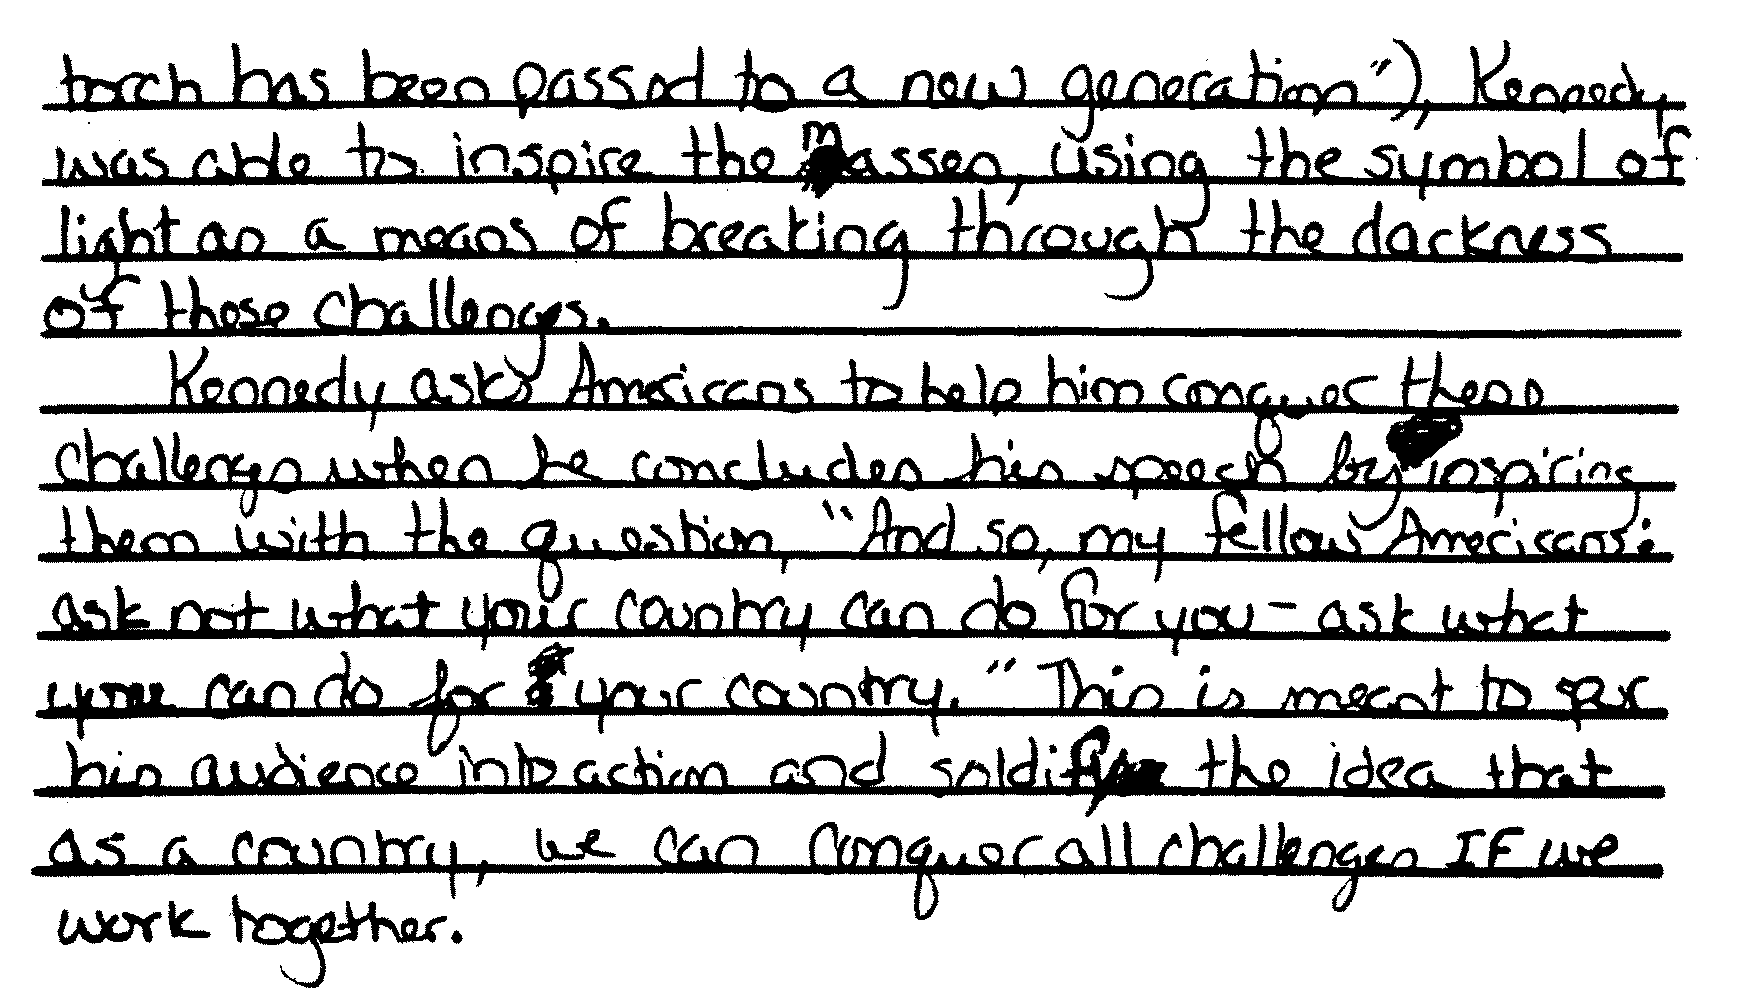 torch has been passed to a new generation"), Kennedy,
was able to inspire the masses, using the symbol of
light as a means of breaking through the darkness
of these challenges.
Kennedy asks Americans to help him conquer these
challenges when he concludes his speech by inspiring
them with the question, "And so, my fellow Americans:
ask not what your country can do for you - ask what
you can do for your country." This is meant to spur
his audience into action and soldify the idea that
as a country, we can conquer all challenges IF we
work together.